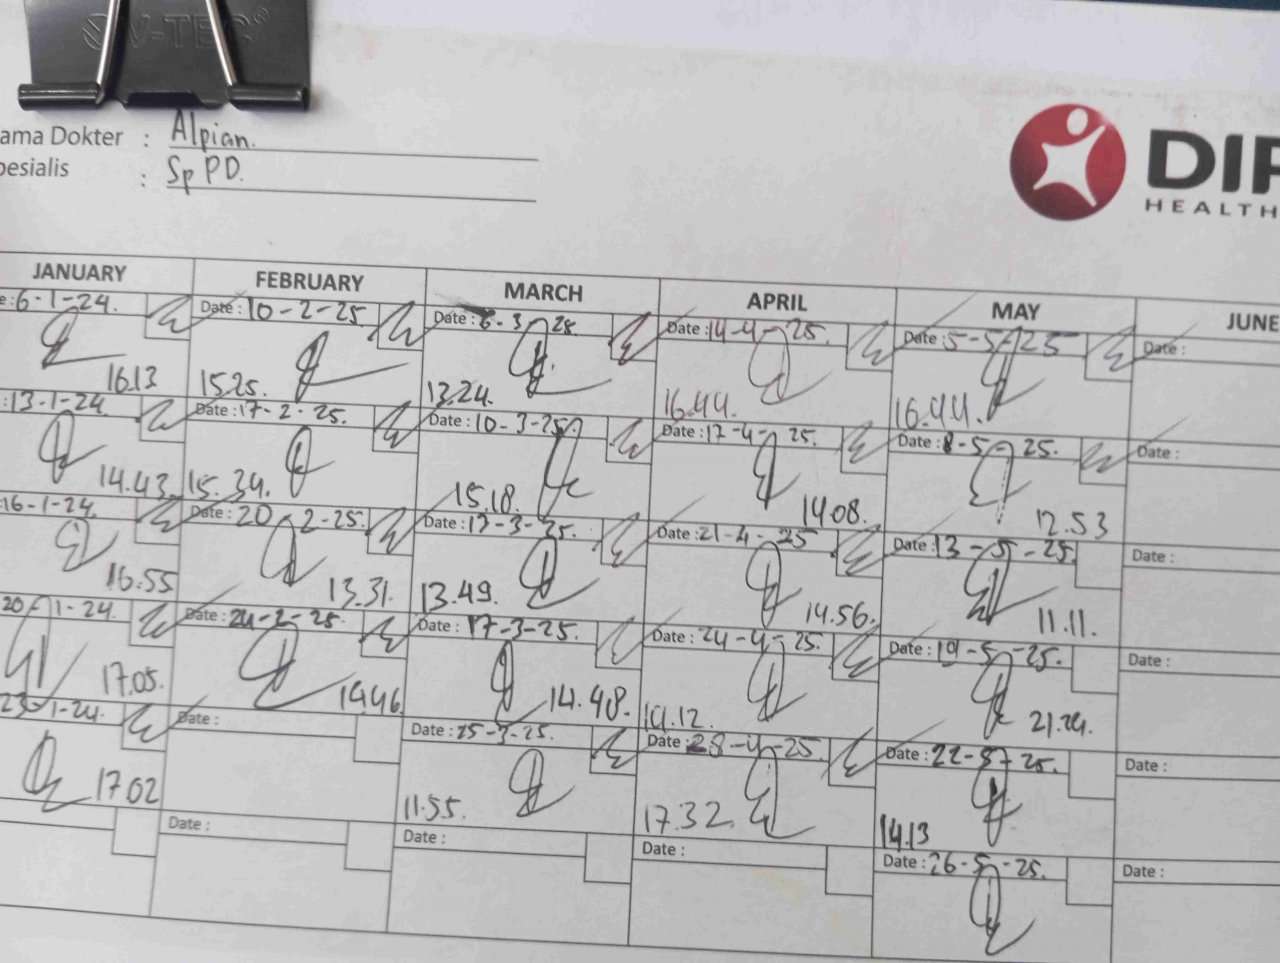 V-TEC
ama Dokter : Alpian.
pesialis : Sp PD.
DIP
HEALTH
JANUARY FEBRUARY MARCH APRIL MAY JUNE
e : 6-1-24. Date : 10-2-25. Date : 6-3 Date : 14-4-25. Date : 5-5-25 Date :
16.13 15.25. 13.24. 16.44. 16.44.
: 13-1-24 Date : 17-2-25. Date : 10-3-25 Date : 17-4-25. Date : 8-5-25. Date :
14.43. 15.34. 15.18. 14.08. 12.53
: 16-1-24. Date : 20-2-25. Date : 13-3-25. Date : 21-4-25 Date : 13-5-25. Date :
16.55 13.31. 13.49. 14.56. 11.11.
20-1-24. Date : 24-2-25. Date : 17-3-25. Date : 24-4-25. Date : 19-5-25. Date :
17.05. 14.46 14.48. 14.12. 21.24.
23-1-24. Date : Date : 25-3-25. Date : 28-4-25. Date : 22-5-25. Date :
17.02 11.55. 17.32. 14.13
Date : Date : Date : Date : 26-5-25. Date :